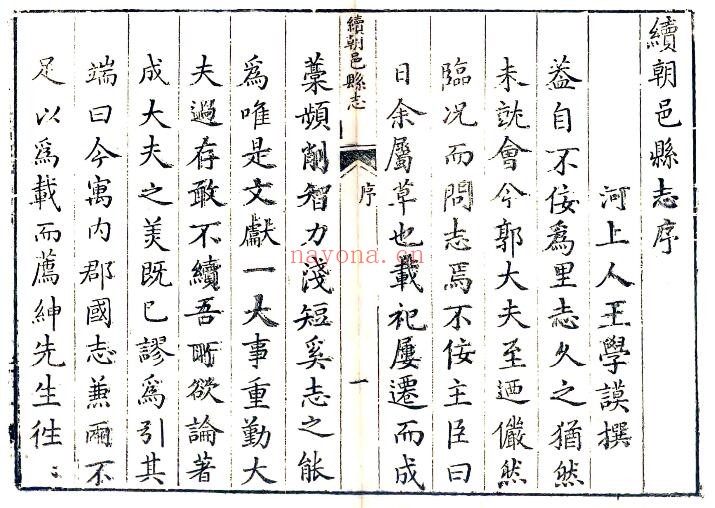 續朝邑縣志序
河上人王學謨撰
葢自不佞爲里志久之猶然
未就會今郭大夫至迺儼然
臨况而問志焉不佞主臣曰
日余屬草也載祀屢遷而成
續朝邑縣志
序
一
藁頻削智力淺短奚志之能
爲唯是文獻一大事重勤大
夫過存敢不續吾所欲論著
成大夫之美既已謬爲引其
端曰今寓内郡國志兼兩不
足以爲載而薦紳先生徃〻
nayona.cn